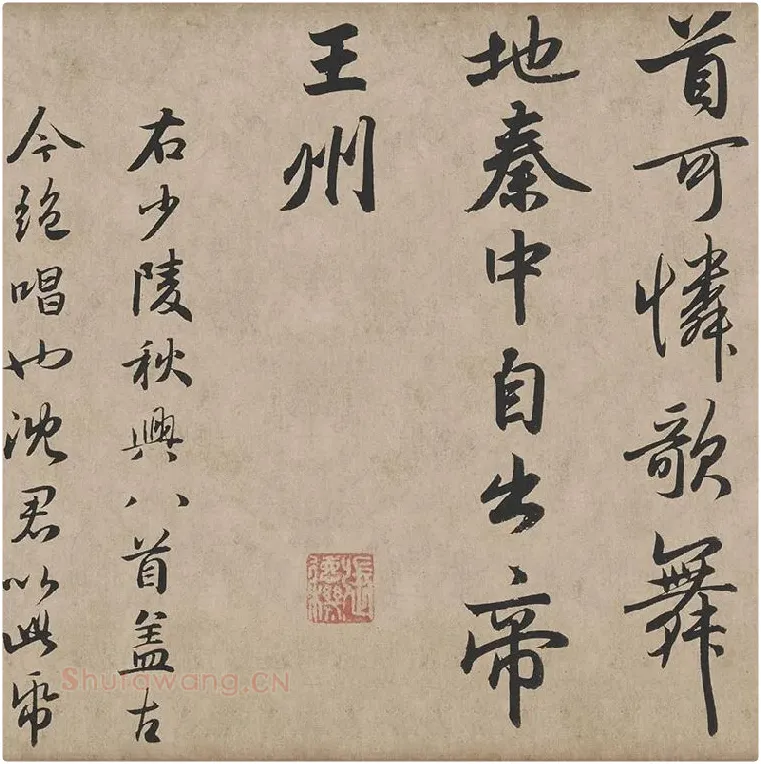 首可憐歌舞
地秦中自出帝
王州
右少陵秋興八首盖古
今絶唱也沈君以此帋
Shufawang.CN